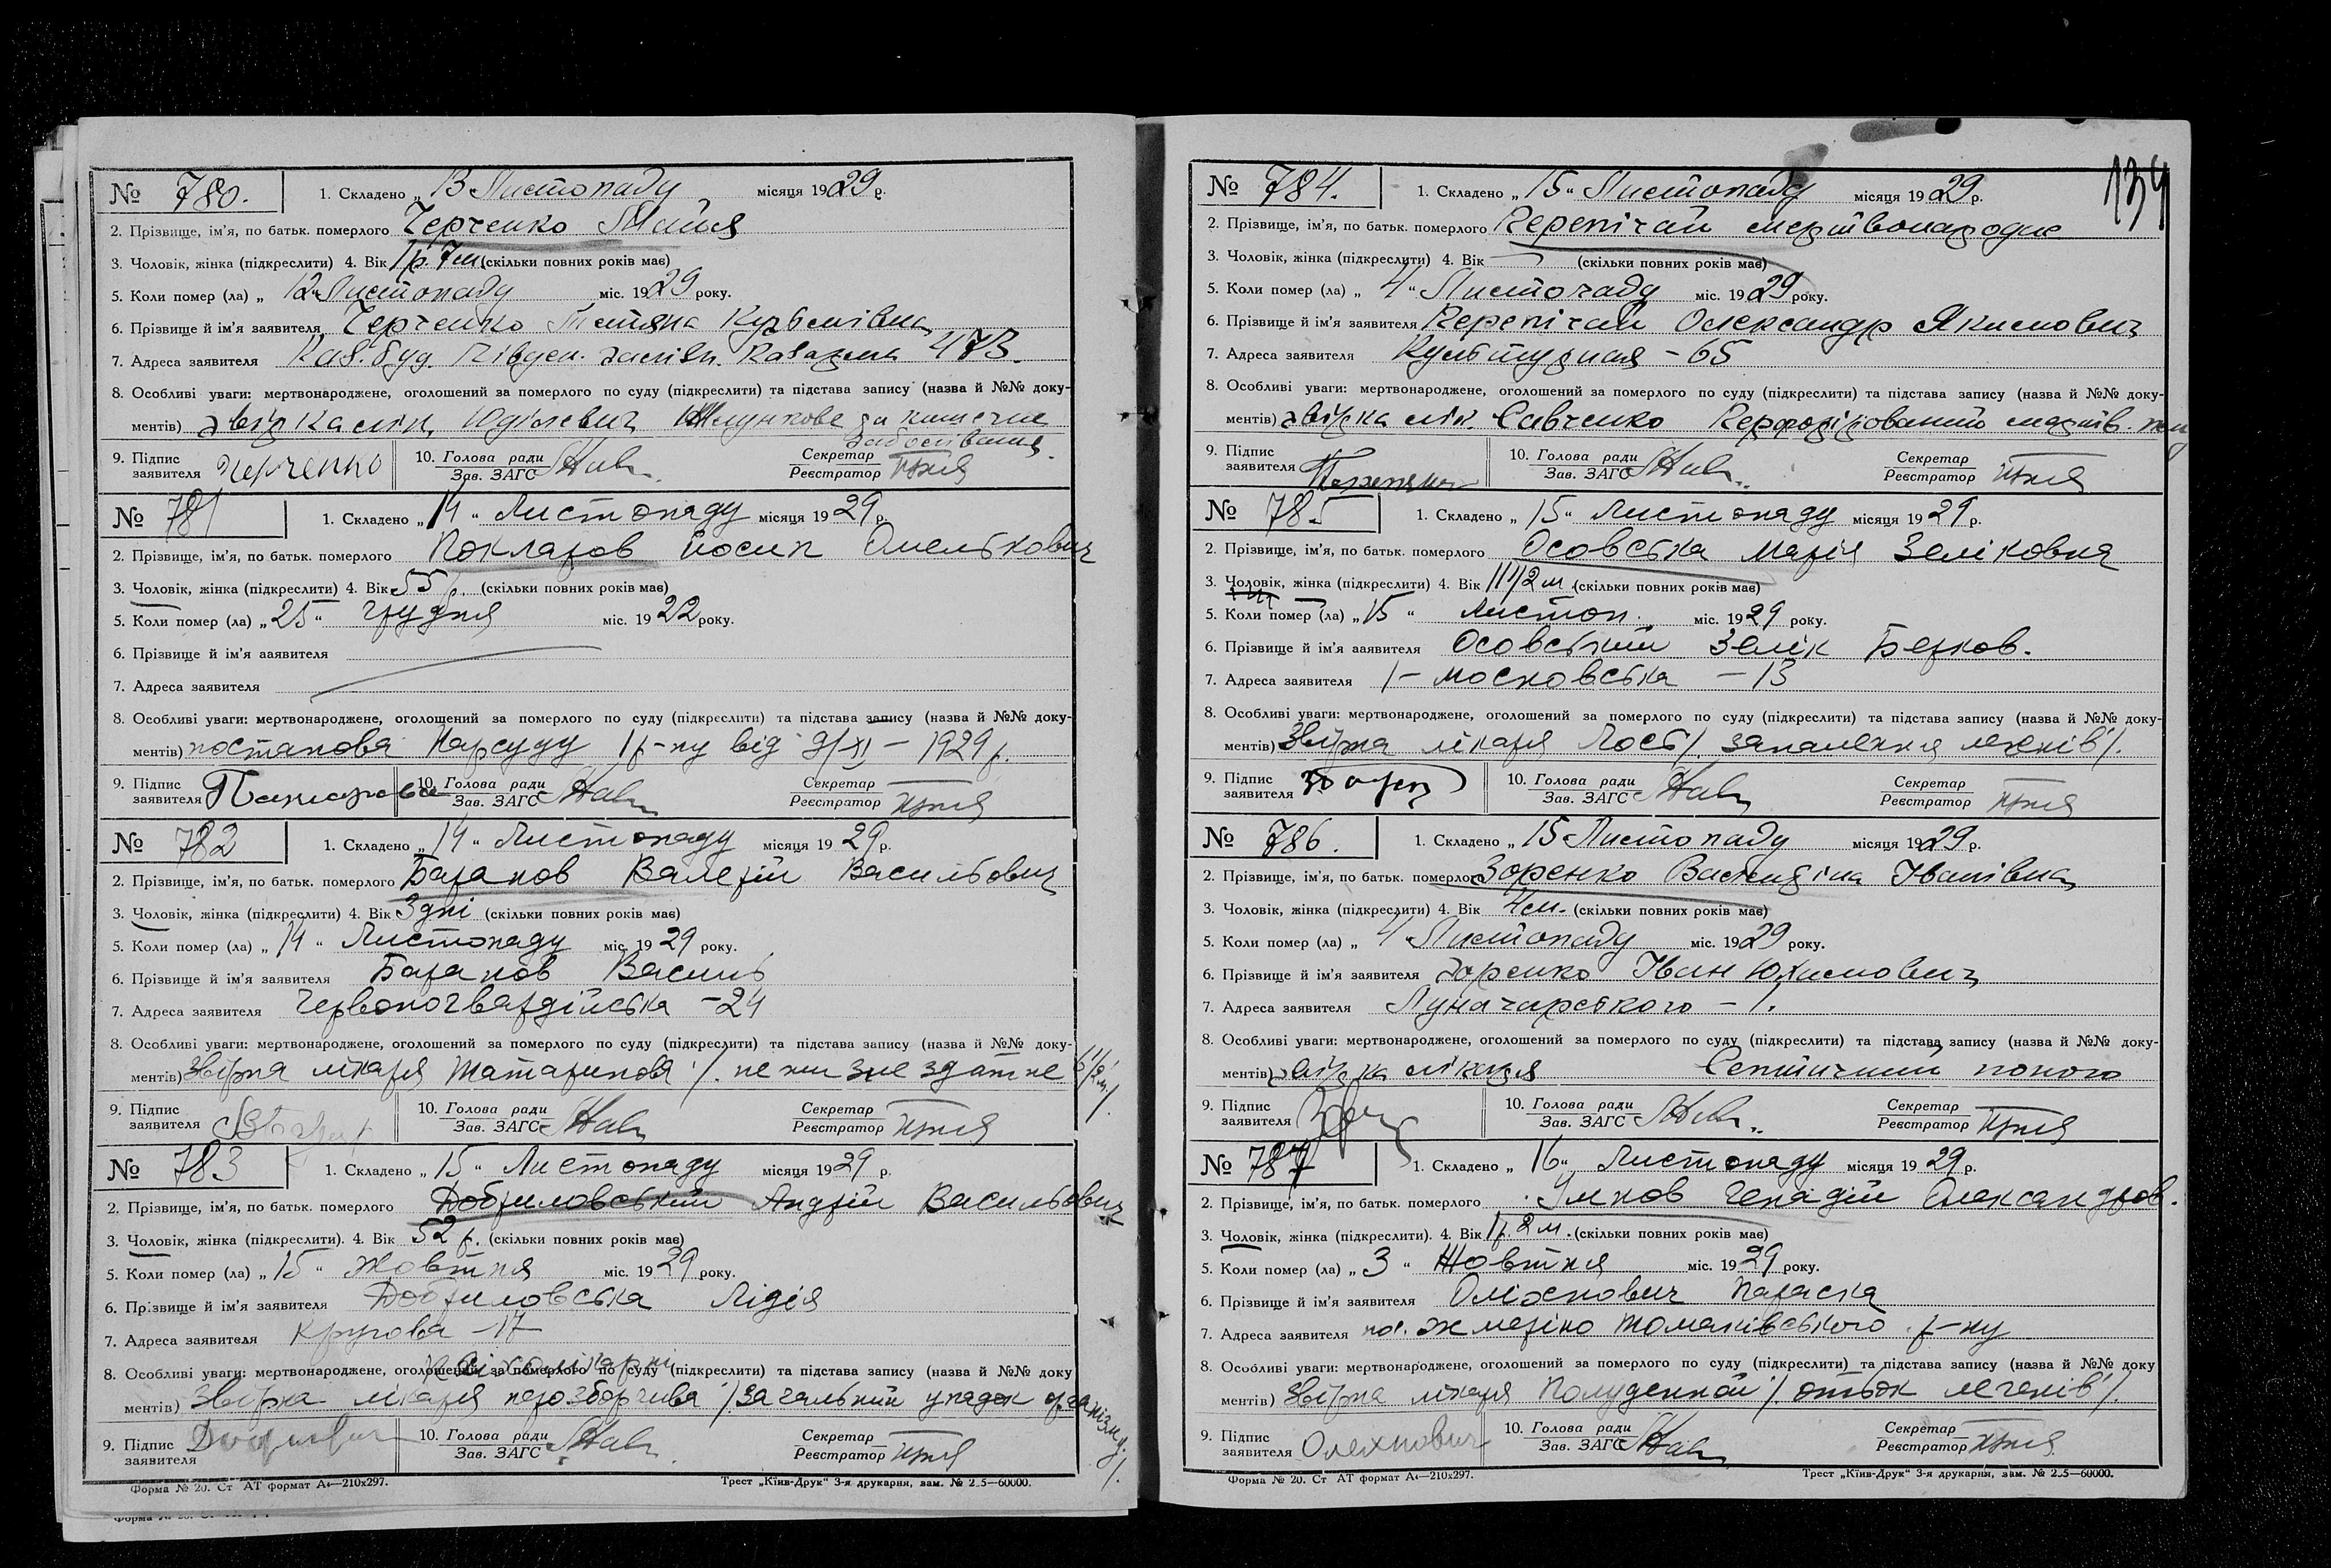 № 780. 1. Складено „ 13 Листопаду місяця 1929 р.
2. Прізвище, ім'я, по батьк. померлого Черченко Майя
3. Чоловік, жінка (підкреслити) 4. Вік 1 р. 7 м. (скільки повних років має)
5. Коли помер (ла) „ 12 " Листопаду міс. 1929 року.
6. Прізвище й ім'я заявителя Черченко Тетяна Кузьмівна
7. Адреса заявителя Каз. буд. Півден. 473.
8. Особливі уваги: мертвонароджене, оголошений за померлого по суду (підкреслити) та підстава запису (назва й №№ доку-
ментів) Юділевич Шлункове за кишечне
9. Підпис заявителя Черченко 10. Голова ради Зав. ЗАГС Секретар Реєстратор
№ 781 1. Складено „ 14 " Листопаду місяця 1929 р.
2. Прізвище, ім'я, по батьк. померлого Покларов Йосип Омелькович
3. Чоловік, жінка (підкреслити) 4. Вік 55 р. (скільки повних років має)
5. Коли помер (ла) „ 25 " грудня міс. 1922 року.
6. Прізвище й ім'я заявителя
7. Адреса заявителя
8. Особливі уваги: мертвонароджене, оголошений за померлого по суду (підкреслити) та підстава запису (назва й №№ доку-
ментів) постанова Нарсуду 1 р-ну від 9/XI – 1929 р.
9. Підпис заявителя 10. Голова ради Зав. ЗАГС Секретар Реєстратор
№ 782 1. Складено „ 14 " Листопаду місяця 1929 р.
2. Прізвище, ім'я, по батьк. померлого Баранов Валерій Васильович
3. Чоловік, жінка (підкреслити) 4. Вік 3 дні (скільки повних років має)
5. Коли помер (ла) „ 14 " Листопаду міс. 1929 року.
6. Прізвище й ім'я заявителя Баранов Василь
7. Адреса заявителя Червоногвардійська – 24
8. Особливі уваги: мертвонароджене, оголошений за померлого по суду (підкреслити) та підстава запису (назва й №№ доку-
ментів) Звірка лікаря Татаринова /. не жизнездатне 6 1/2 м /.
9. Підпис заявителя 10. Голова ради Зав. ЗАГС Секретар Реєстратор
№ 783 1. Складено „ 15 " Листопаду місяця 1929 р.
2. Прізвище, ім'я, по батьк. померлого Добриловський Андрій Васильович
3. Чоловік, жінка (підкреслити). 4. Вік 52 р. (скільки повних років має)
5. Коли помер (ла) „ 15 " Жовтня міс. 1929 року.
6. Прізвище й ім'я заявителя Добриловська Лідія
7. Адреса заявителя Кругова – 17
8. Особливі уваги: мертвонароджене, оголошений за померлого по суду (підкреслити) та підстава запису (назва й №№ доку
ментів) Звірка лікаря /загальний упадок організму. /.
9. Підпис заявителя 10. Голова ради Зав. ЗАГС Секретар Реєстратор
Форма № 20. Ст АТ формат А₄—210x297. Трест „Київ-Друк" 3-я друкарня, зам. № 2.5—60000.
134
№ 784. 1. Складено „ 15 " Листопаду місяця 1929 р.
2. Прізвище, ім'я, по батьк. померлого Керепічай мертвонародне
3. Чоловік, жінка (підкреслити) 4. Вік — (скільки повних років має)
5. Коли помер (ла) „ 4 " Листопаду міс. 1929 року.
6. Прізвище й ім'я заявителя Керепічай Олександр Якимович
7. Адреса заявителя – 65
8. Особливі уваги: мертвонароджене, оголошений за померлого по суду (підкреслити) та підстава запису (назва й №№ доку-
ментів) звірка лік. Савченко
9. Підпис заявителя 10. Голова ради Зав. ЗАГС Секретар Реєстратор
№ 785 1. Складено „ 15 " Листопаду місяця 1929 р.
2. Прізвище, ім'я, по батьк. померлого Осовська Марія Зеліковна
3. Чоловік, жінка (підкреслити) 4. Вік 11 1/2 м (скільки повних років має)
5. Коли помер (ла) „ 15 " Листоп. міс. 1929 року.
6. Прізвище й ім'я заявителя Осовський Зелік Берков.
7. Адреса заявителя 1 – Московська – 13
8. Особливі уваги: мертвонароджене, оголошений за померлого по суду (підкреслити) та підстава запису (назва й №№ доку-
ментів) Звірка лікаря /. запалення легенів /.
9. Підпис заявителя 10. Голова ради Зав. ЗАГС Секретар Реєстратор
№ 786. 1. Складено „ 15 " Листопаду місяця 1929 р.
2. Прізвище, ім'я, по батьк. померлого Зоренко Валендіна Іванівна
3. Чоловік, жінка (підкреслити) 4. Вік 4 м. (скільки повних років має)
5. Коли помер (ла) „ 4 " Листопаду міс. 1929 року.
6. Прізвище й ім'я заявителя Зоренко Іван Юхимович
7. Адреса заявителя Луначарського – 1.
8. Особливі уваги: мертвонароджене, оголошений за померлого по суду (підкреслити) та підстава запису (назва й №№ доку-
ментів) звірка лікаря Септичний понос
9. Підпис заявителя 10. Голова ради Зав. ЗАГС Секретар Реєстратор
№ 787 1. Складено „ 16 " Листопаду місяця 1929 р.
2. Прізвище, ім'я, по батьк. померлого Улков Генадій Олександров.
3. Чоловік, жінка (підкреслити). 4. Вік 1 р. 2 м. (скільки повних років має)
5. Коли помер (ла) „ 3 " Жовтня міс. 1929 року.
6. Прізвище й ім'я заявителя Оліхнович Параска
7. Адреса заявителя Томаківського р-ну
8. Особливі уваги: мертвонароджене, оголошений за померлого по суду (підкреслити) та підстава запису (назва й №№ доку
ментів) Звірка лікаря Полуденной /. отьок легенів /.
9. Підпис заявителя Олехнович 10. Голова ради Зав. ЗАГС Секретар Реєстратор
Форма № 20. Ст АТ формат А₄—210x297. Трест „Київ-Друк" 3-я друкарня, зам. № 2.5—60000.